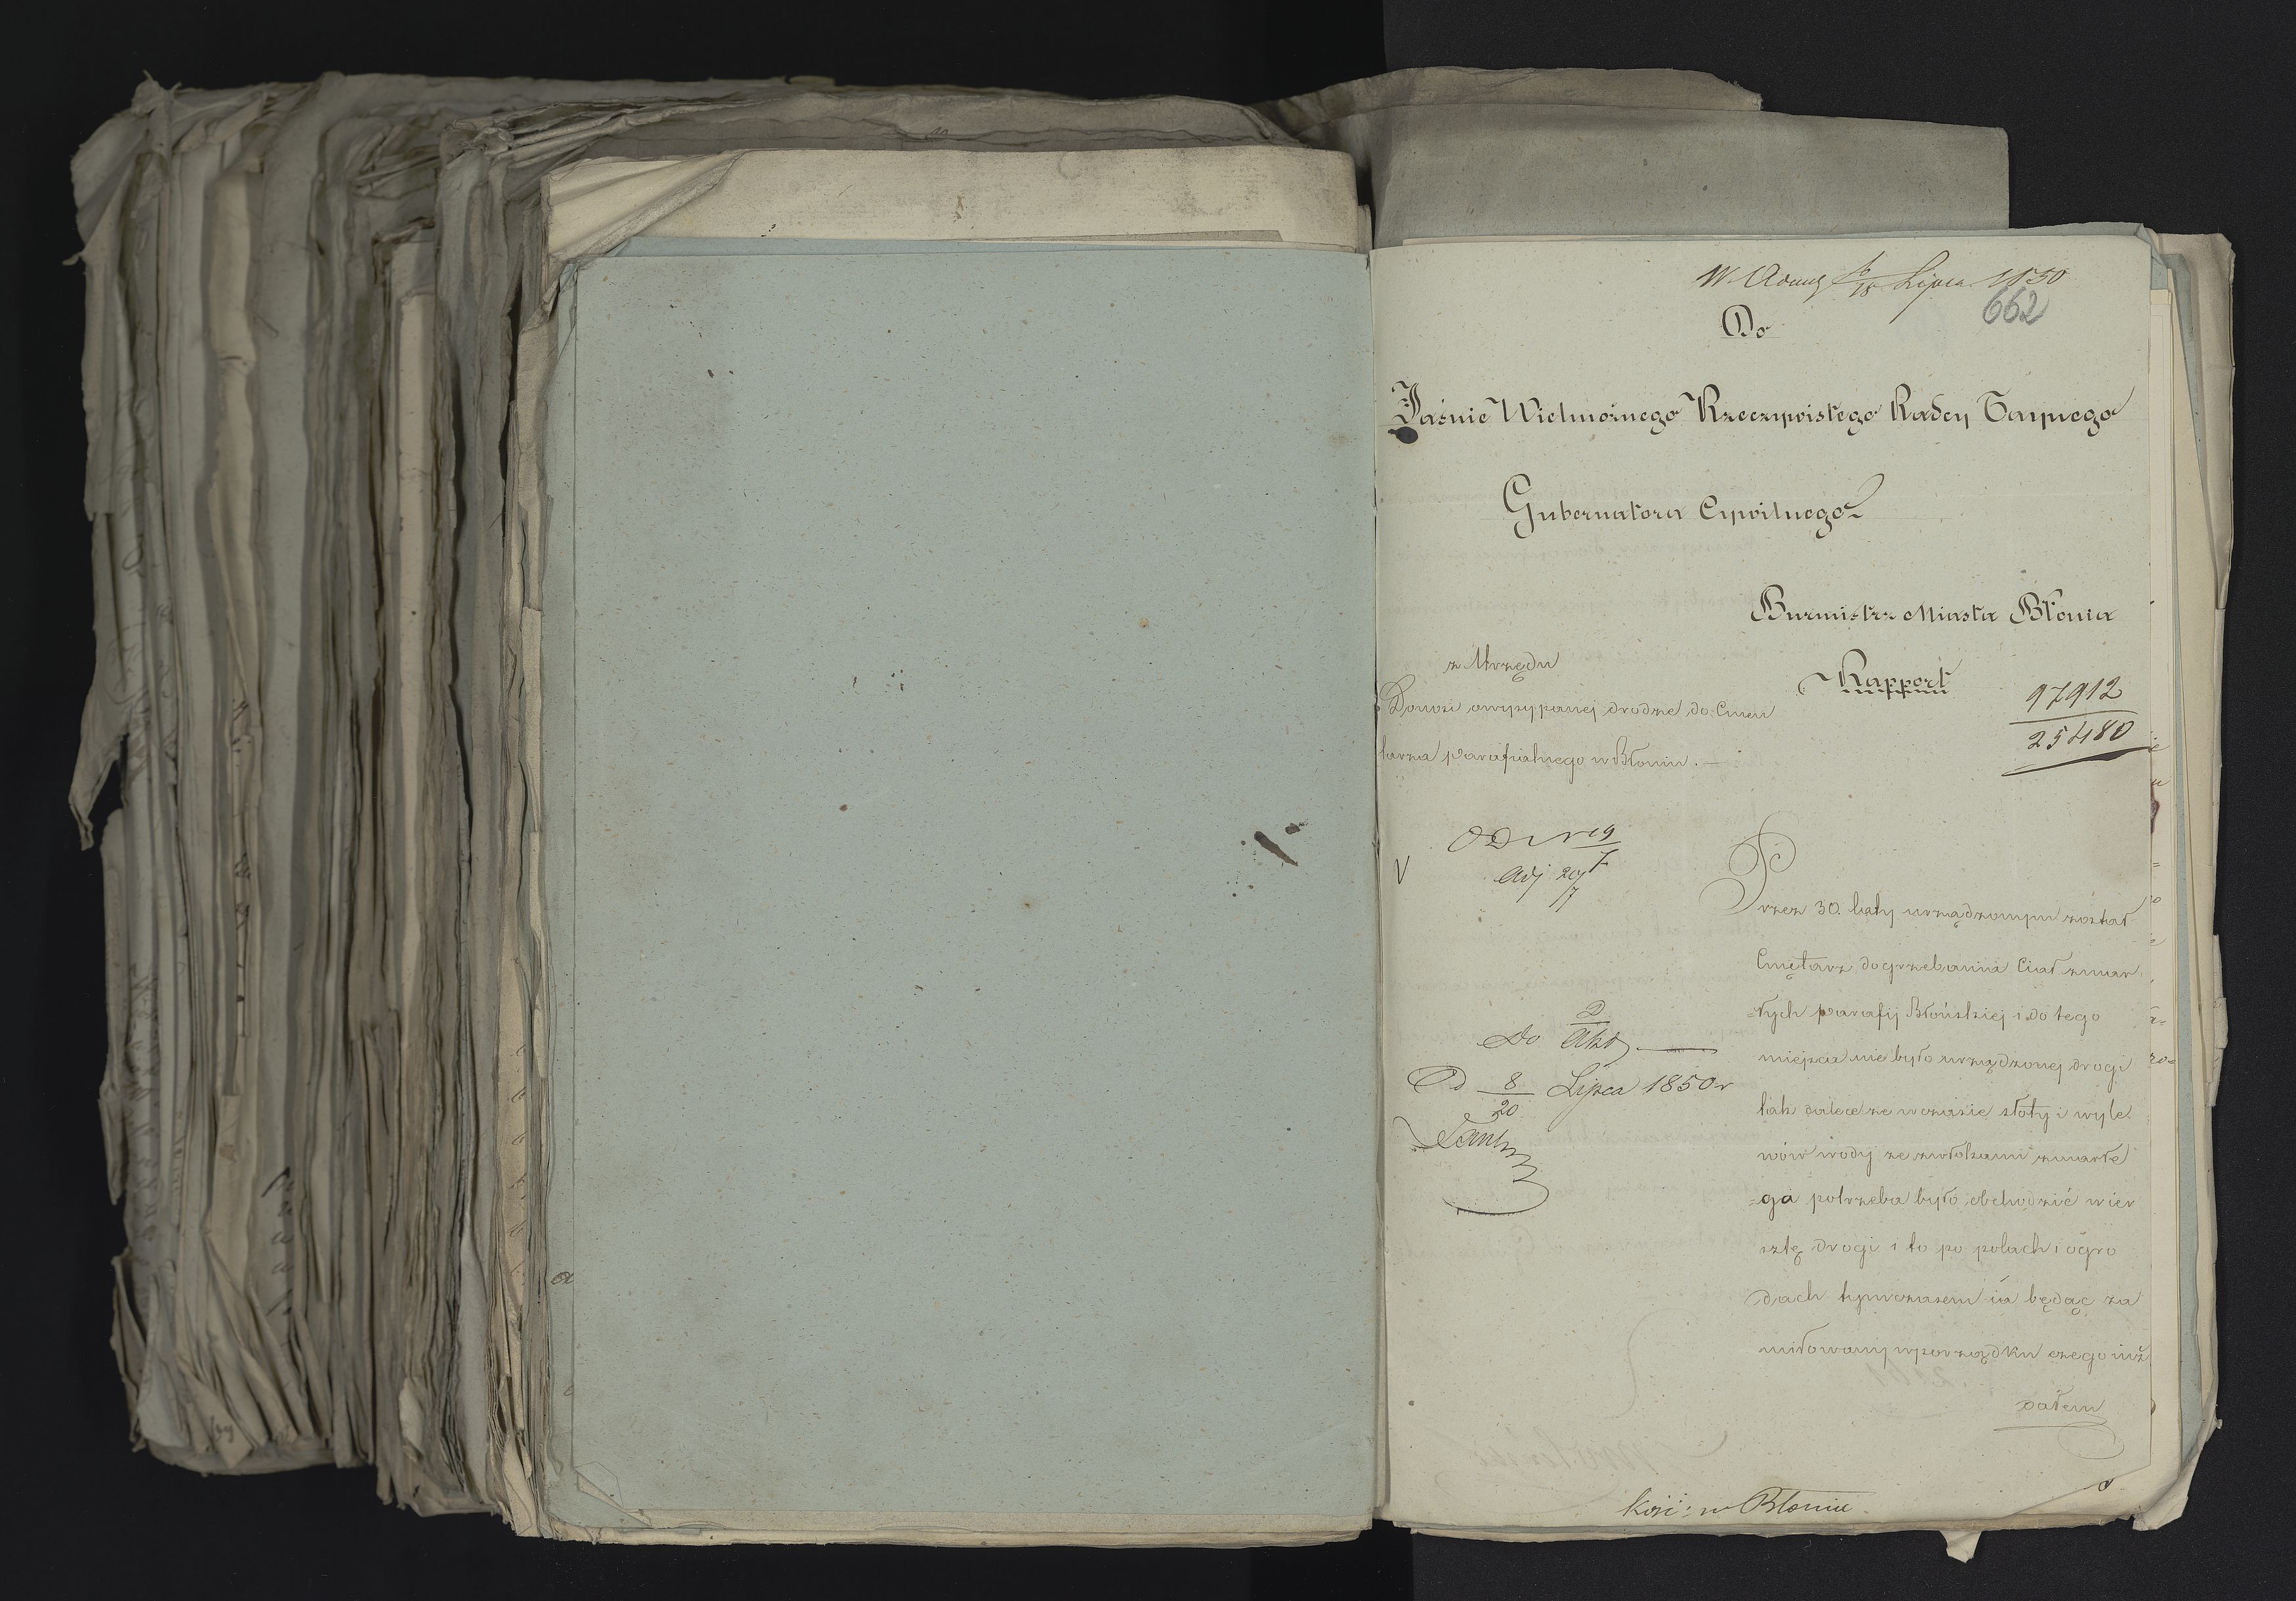 6/18 Lipca 1850
662
Do
Jaśnie Wielmożnego Rzeczywistego Radcy Taynego
Gubernatora Cywilnego
Burmistrz Miasta Błonia
z Urzędu
Rapport
Donosi o wysypanej drodze do Cmen
tarza parafialnego w Błoniu. —
97912
25480
V
Adj 20/7
Przez 30. laty urządzonym został
Cmętarz do grzebania Ciał zmar
=łych parafij Błońskiej i do tego
miejsca nie było urządzonej drogi
tak dalece ze w czasie słoty i wyle
wów wody ze zwłokami zmarłe
=go potrzeba było obchodzić wier
sztę drogi i to po polach i ogro
dach tymczasem ia będąc za
miłowany w porządku czego iuż
dałem
Do Akt
D 8/20 Lipca 1850 r
kość: w Błoniu